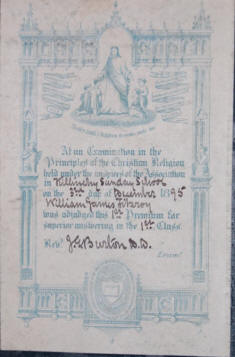 At an Examination in the
Principles of the Christian Religion
held under the auspices of the Association
in Killinchy Sunday School
on the 3rd day of December 1895
William James Fitzroy
was adjudged this 1st Premium for
superior answering in the 1st Class.
Revd. J. G. Burton B.D.